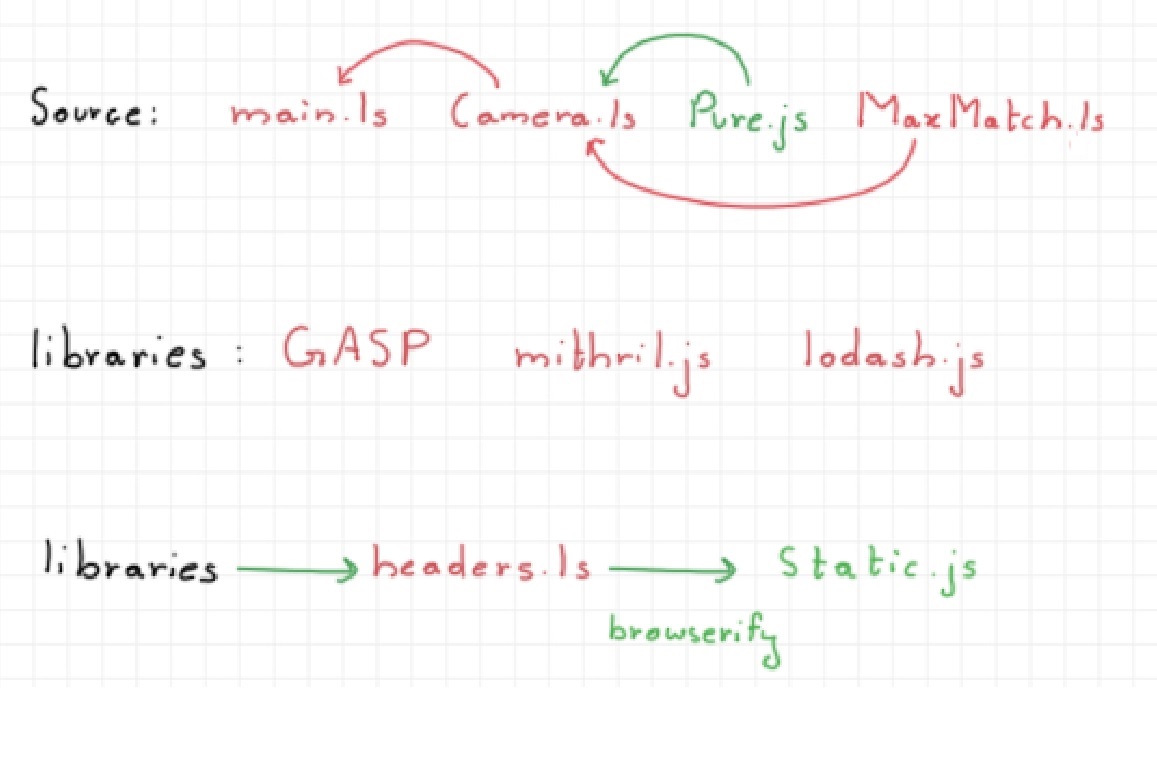 Source: main.ls Camera.ls Pure.js MaxMatch.ls
libraries : GASP mithril.js lodash.js
libraries headers.ls Static.js
browserify